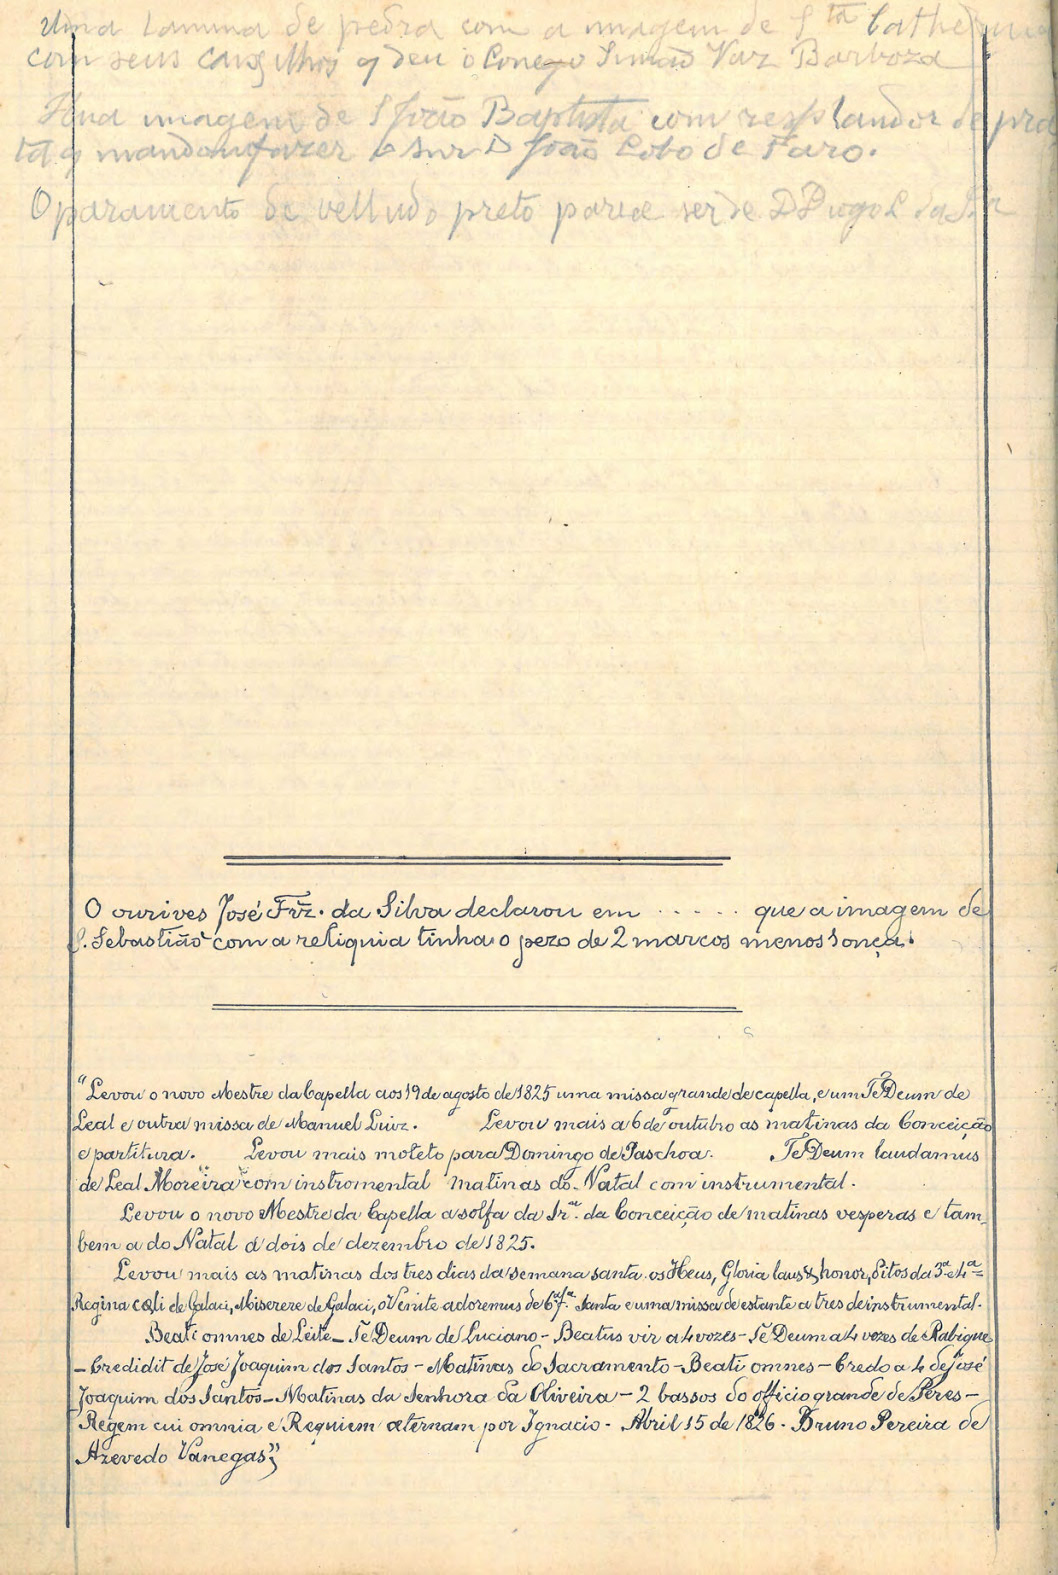 Uma lamina de pedra com a imagem de Sta Catherina
com seus caixilhos q deu o Conego Simão Vaz Barboza
Hua imagem de S João Baptista com resplandor de pra
ta q mandou fazer o Snr D João Lobo de Faro.
O paramento de velludo preto parece ser de D Diogo L da Sª
O ourives José Frz. da Silva declarou em ..... que a imagem de
S. Sebastião com a reliquia tinha o pezo de 2 marcos menos 1 onça.
"Levou o novo Mestre da Capella aos 19 de agosto de 1825 uma missa grande de capella, e um Te Deum de
Leal e outra missa de Manuel Luiz. Levou mais a 6 de outubro as matinas da Conceição
e partitura. Levou mais moteto para Domingo de Paschoa. Te Deum laudamus
de Leal Moreira com instromental Matinas do Natal com instrumental.
Levou o novo Mestre da Capella a solfa da Ir.ª da Conceição de matinas vesperas e tam-
bem a do Natal a dois de dezembro de 1825.
Levou mais as matinas dos tres dias da semana santa. os Heus, Gloria laus & honor, Ditos da 3ª e 4ª=
Regina cœli de Galaci, Miserere de Galaci, o Venite adoremus de 6ª f.ª Santa e uma missa de estante a tres de instrumental.
Beati omnes de Leite_ Te Deum de Luciano - Beatus vir a 4 vozes - Te Deum a 4 vozes de Rabique
_ Credidit de José Joaquim dos Santos - Matinas do Sacramento - Beati omnes - Credo a 4 de José
Joaquim dos Santos - Matinas da Senhora da Oliveira - 2 bassos do officio grande de Peres -
Regem cui omnia e Requiem æternam por Ignacio - Abril 15 de 1826 - Bruno Pereira de
Azevedo Vanegas";